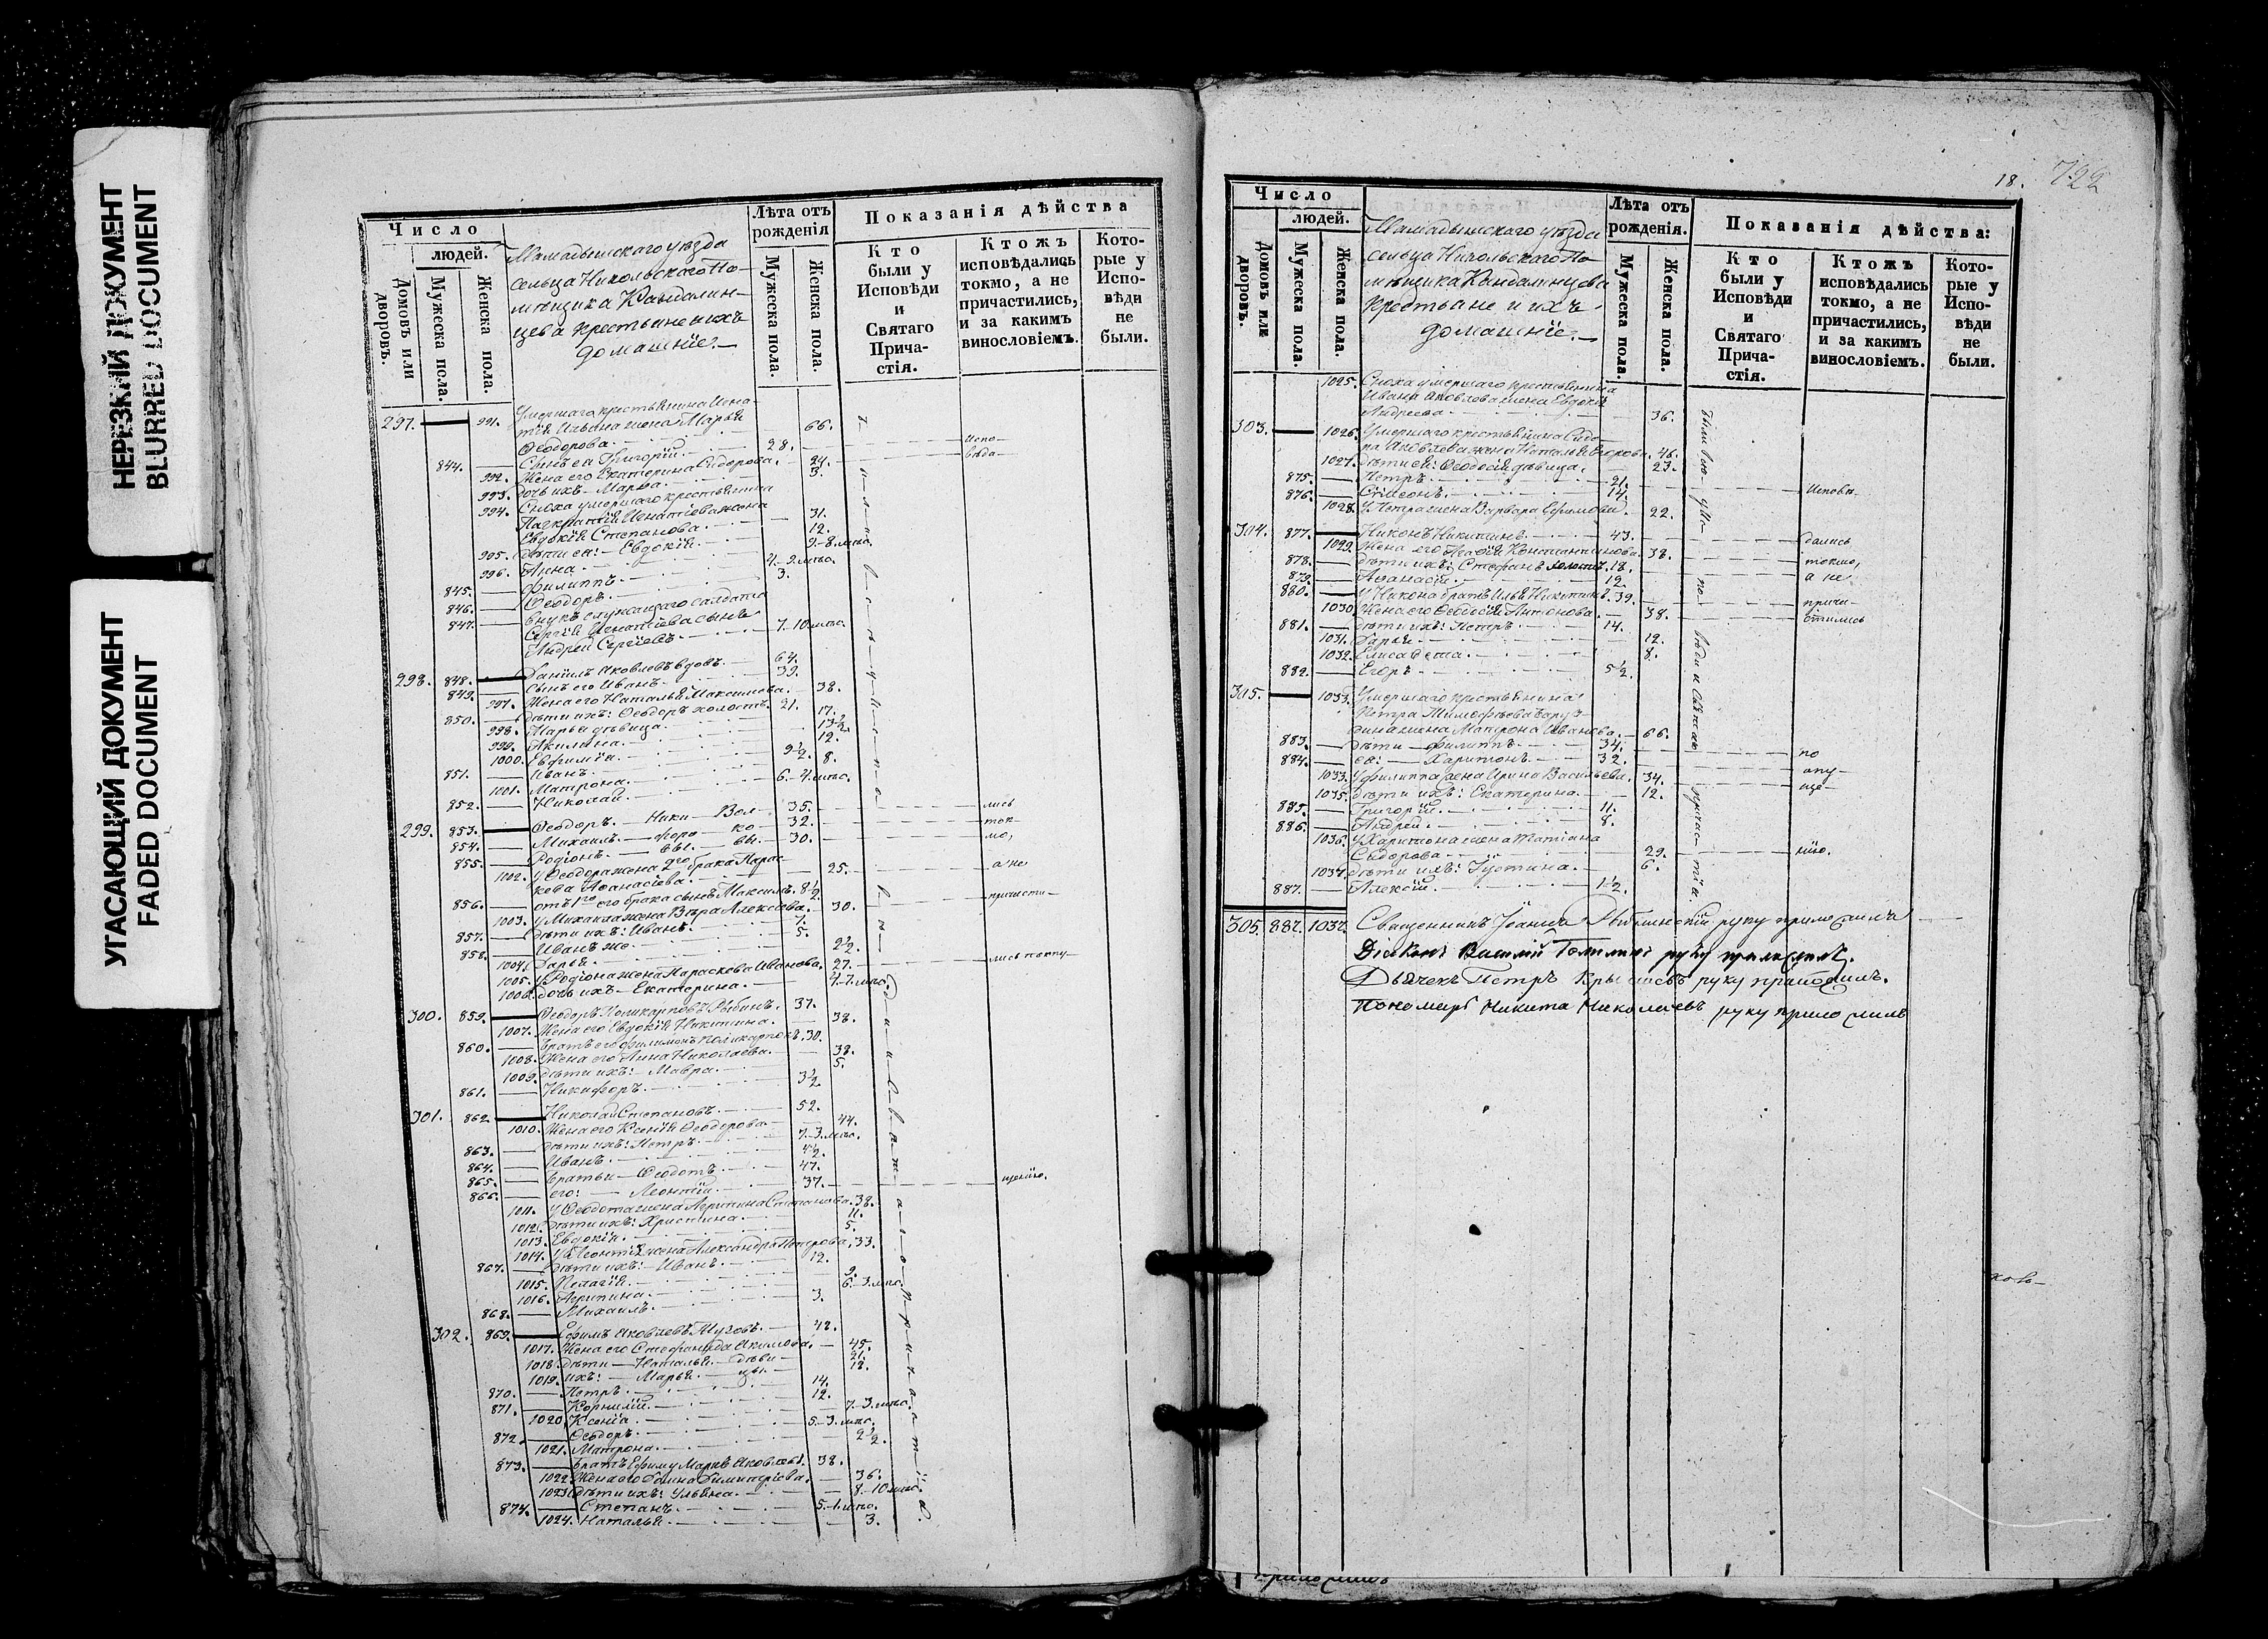 НЕРЕЗКИЙ ДОКУМЕНТ
BLURRED DOCUMENT
УГАСАЮЩИЙ ДОКУМЕНТ
FADED DOCUMENT
Число
людей.
Домовъ или дворовъ.
Мужеска пола.
Женска пола.
Мамадышскаго уѣзда
сельца Никольскаго По-
мѣщика Кандалин-
цева крестьяне и ихъ
домашніе.
Лѣта отъ рожденія
Мужеска пола.
Женска пола.
Показанія дѣйства
Кто были у Исповѣди и Святаго Прича-стія.
Ктожъ исповѣдались токмо, а не причастились, и за какимъ винословіемъ.
Кото-рые у Испо-вѣди не были.
297. 991. Умершаго крестьянина Игна-
тія жена Марья
Ѳеодорова. 66.
844. Сынъ ея Григорій. 28. испо-
992. Жена его Екатерина Сидорова. 24. вѣда-
993. дочь ихъ Марѳа. 3.
994. Сноха умершаго крестьянина
Игнатіева жена
Евдокія Степанова. 31.
995. дѣти ея: Евдокія. 12.
996. Анна. 9. 8. мѣс.
845. Филиппъ. 4. 9. мѣс.
846. Ѳеодоръ. 3.
847. Внукъ служащаго солдата
Сергія Игнатіева сынъ
Андрей Сергіевъ. 7. 10 мѣс.
298. 848. Даніилъ Яковлевъ вдовъ. 64.
849. Сынъ его Иванъ. 39.
997. Жена его Наталья Максимова. 38.
850. дѣти ихъ: Ѳеодоръ холостъ 21.
998. Марья дѣвица. 17.
999. Акилина. 13½
1000. Евфимія. 12.
851. Иванъ. 9½.
1001. Матрона. 8.
852. Николай. 6. 4. мѣс.
299. 853. Ѳеодоръ. Ники- Вол- 35. лись
854. Михаилъ. форо- ко- 32. ток-
855. Родіонъ. вы. вы. 30. мо,
1002. У Ѳеодора жена 2го брака Парас-
кева Аѳанасіева. 25. а не
856. отъ 1го его брака сынъ Максимъ. 8½
1003. У Михаила жена Вѣра Алексѣева. 30. причасти-
857. дѣти ихъ: Иванъ. 7.
858. Иванъ же. 5.
1004. Дарья. 2½.
1005. У Родіона жена Параскева Иванова. 27. лись по опу-
1006. дочь ихъ Екатерина. 4. 7. мѣс.
300. 859. Ѳеодоръ Поликарповъ Рыбинъ. 37.
1007. Жена его Евдокія Никитина. 38.
860. Братъ его Филимонъ Поликарповъ. 30.
1008. Жена его Анна Николаева. 38.
1009. дѣти ихъ: Мавра. 5.
861. Никифоръ. 3½.
301. 862. Николай Степановъ. 52.
1010. Жена его Ксенія Ѳеодорова. 44.
863. дѣти ихъ: Петръ. 7. 3. мѣс.
864. Иванъ. 4½.
865. Братья Ѳеодотъ. 47.
866. его: Леонтій. 37. щенію.
1011. У Ѳеодота жена Агрипина Степанова. 38.
1012. дѣти ихъ: Христина. 11.
1013. Евдокія. 5.
1014. У Леонтія жена Александра Петрова. 33.
867. дѣти ихъ: Иванъ. 12.
1015. Пелагія. 9.
1016. Агрипина. 6. 3. мѣс.
868. Михаилъ. 3.
302. 869. Ефимъ Яковлевъ 48.
1017. Жена его Стефанида Акимова. 45.
1018. дѣти Наталья. дѣви- 21.
1019. ихъ: Марья. цы. 18.
870. Петръ. 14.
871. Корнилій. 12.
1020. Ксенія. 7. 3. мѣс.
872. Ѳеодоръ. 5. 3. мѣс.
1021. Матрона. 2½.
873. Братъ Ефиму Маркъ Яковлевъ. 38.
1022. Жена его Димитріева. 36.
1023. дѣти ихъ: Ульяна. 8. 10 мѣс.
874. Степанъ. 5. 1. мѣс.
1024. Наталья. 3.
18. 722
Число
людей.
Домовъ или дворовъ.
Мужеска пола.
Женска пола.
Мамадышскаго уѣзда
сельца Никольскаго По-
мѣщика Кандалинцева
крестьяне и ихъ
домашніе.
Лѣта отъ рожденія.
Мужеска пола.
Женска пола.
Показанія дѣйства:
Кто были у Исповѣди и Святаго Прича-стія.
Ктожъ исповѣдались токмо, а не причастились, и за какимъ винословіемъ.
Кото-рые у Испо-вѣди не были.
1025. Сноха умершаго крестьянина
Ивана Яковлева жена Евдокія
Андреева. 36.
303. 1026. Умершаго крестьянина Сидо-
ра Яковлева жена Наталья Егорова. 46.
1027. дѣти ея: Ѳеодосія дѣвица. 23.
875. Петръ. 21. Исповѣ-
876. Симеонъ. 14.
1028. У Петра жена Варвара Ефимова. 22.
304. 877. Никонъ Никитинъ. 43. дались
1029. Жена его Агафія Константинова. 38. токмо,
878. дѣти ихъ: Стефанъ холостъ. 18. а не
879. Аѳанасій. 12.
880. У Никона братъ Илья Никитинъ. 39. прича-
1030. Жена его Ѳеодосія Антонова. 38. стились
881. дѣти ихъ: Петръ. 14.
1031. Дарья. 12.
1032. Елисавета. 8.
882. Егоръ. 5½.
305. 1033. Умершаго крестьянина
Петра Тимофѣева
жена Матрона Иванова. 66.
883. дѣти Филиппъ. 34. по
884. ея: Харитонъ. 32. опу-
1033. У Филиппа жена Ирина Васильева. 34. ще-
1035. дѣти ихъ: Екатерина. 12.
885. Григорій. 11.
886. Андрей. 8.
1036. У Харитона жена Татіана
Сидорова. 29. нію.
1037. дѣти ихъ: Іустина. 6.
887. Алексій. 1½.
305. 887. 1037. Священникъ Іоаннъ руку приложилъ
Діаконъ Василій руку приложилъ.
Дьячекъ Петръ руку приложилъ.
Пономарь Никита Николаевъ руку приложилъ
ковъ-
приложилъ